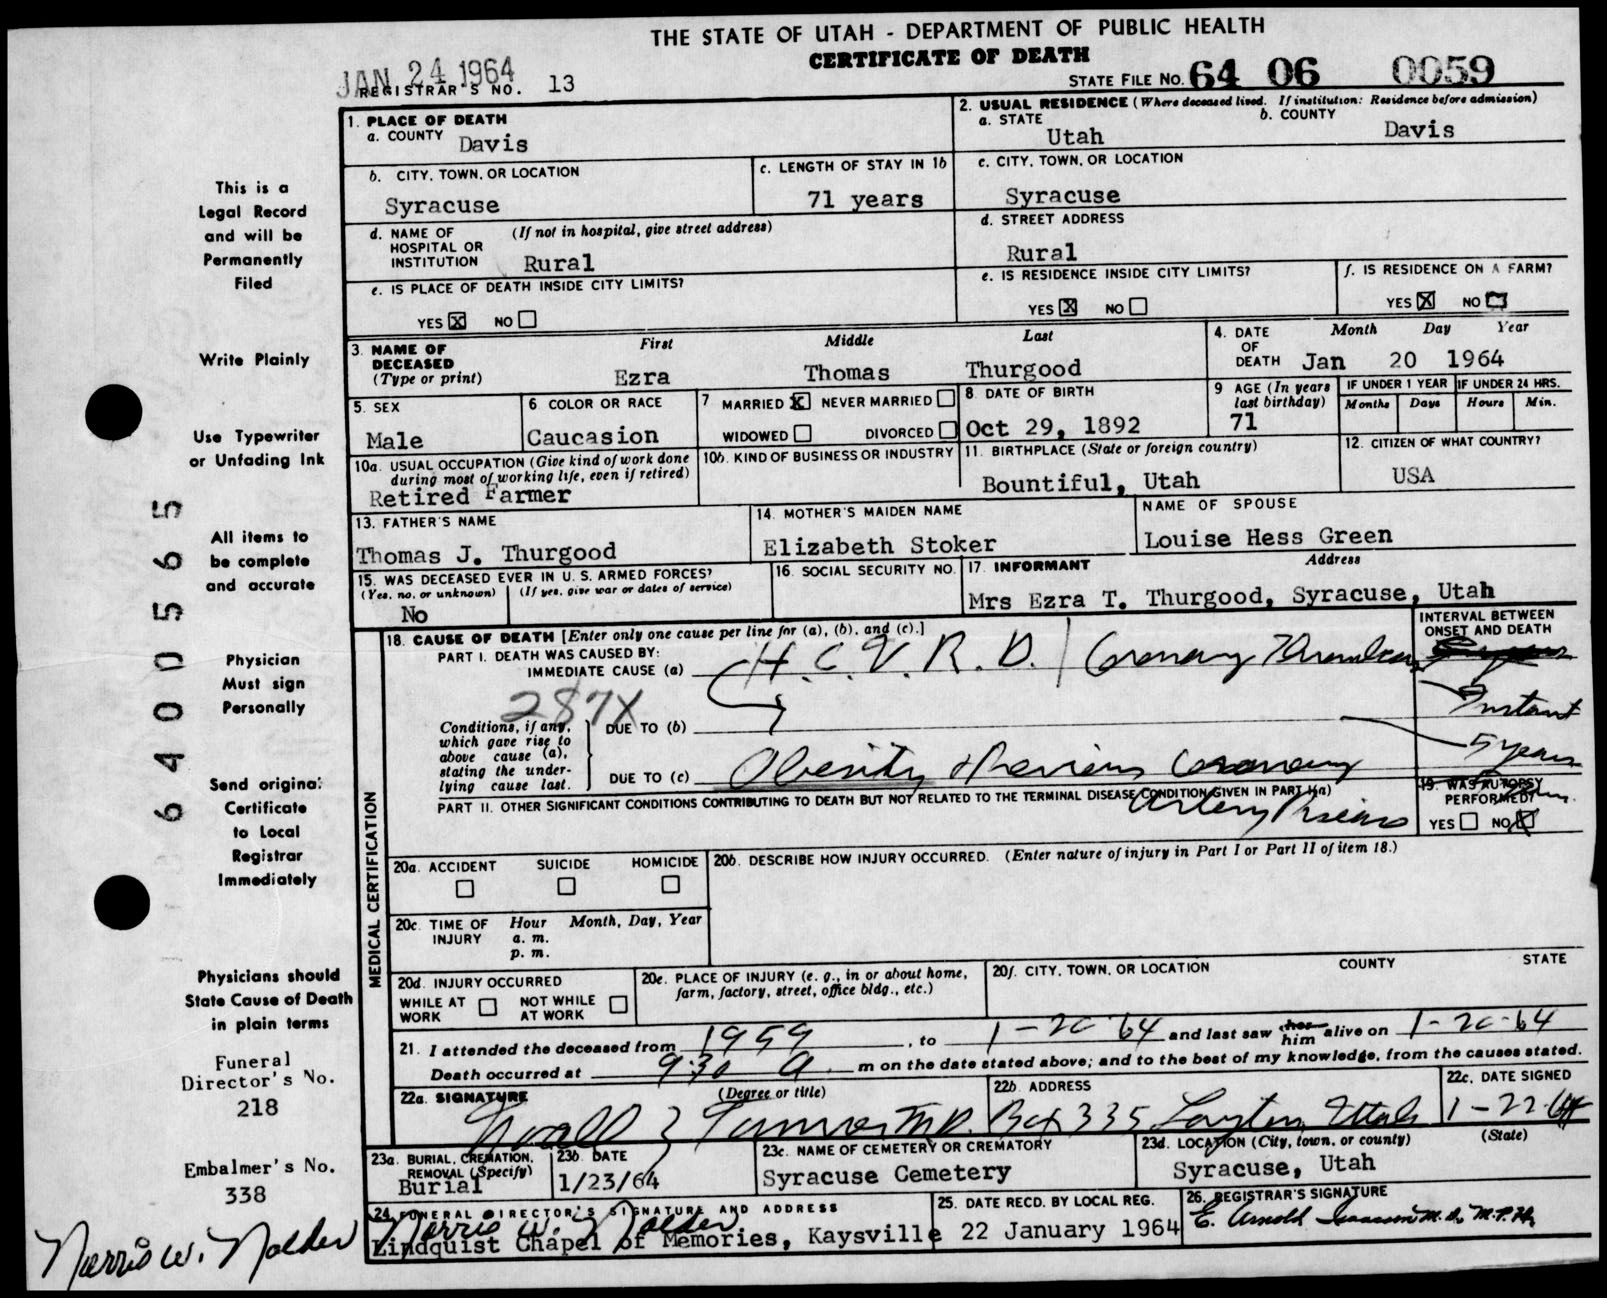 THE STATE OF UTAH - DEPARTMENT OF PUBLIC HEALTH
CERTIFICATE OF DEATH
JAN 24 1964
REGISTRAR'S NO. 13
STATE FILE NO. 64 06 0059
This is a
Legal Record
and will be
Permanently
Filed
Write Plainly
Use Typewriter
or Unfading Ink
All items to
be complete
and accurate
Physician
Must sign
Personally
Send original
Certificate
to Local
Registrar
Immediately
Physicians should
State Cause of Death
in plain terms
Funeral
Director's No.
218
Embalmer's No.
338
Norris W. Nalder
64005565
1. PLACE OF DEATH
a. COUNTY Davis
2. USUAL RESIDENCE (Where deceased lived. If institution: Residence before admission)
a. STATE Utah b. COUNTY Davis
b. CITY, TOWN, OR LOCATION Syracuse
c. LENGTH OF STAY IN 1b 71 years
c. CITY, TOWN, OR LOCATION Syracuse
d. NAME OF HOSPITAL OR INSTITUTION (If not in hospital, give street address) Rural
d. STREET ADDRESS Rural
e. IS PLACE OF DEATH INSIDE CITY LIMITS? YES X NO
e. IS RESIDENCE INSIDE CITY LIMITS? YES X NO
f. IS RESIDENCE ON A FARM? YES X NO
3. NAME OF DECEASED (Type or print) First Ezra Middle Thomas Last Thurgood
4. DATE OF DEATH Month Day Year Jan 20 1964
5. SEX Male
6. COLOR OR RACE Caucasion
7 MARRIED X NEVER MARRIED
WIDOWED DIVORCED
8. DATE OF BIRTH Oct 29, 1892
9 AGE (In years last birthday) 71
IF UNDER 1 YEAR Months Days
IF UNDER 24 HRS. Hours Min.
10a. USUAL OCCUPATION (Give kind of work done during most of working life, even if retired) Retired Farmer
10b. KIND OF BUSINESS OR INDUSTRY
11. BIRTHPLACE (State or foreign country) Bountiful, Utah
12. CITIZEN OF WHAT COUNTRY? USA
13. FATHER'S NAME Thomas J. Thurgood
14. MOTHER'S MAIDEN NAME Elizabeth Stoker
NAME OF SPOUSE Louise Hess Green
15. WAS DECEASED EVER IN U. S. ARMED FORCES? (Yes, no, or unknown) (If yes, give war or dates of service) No
16. SOCIAL SECURITY NO.
17. INFORMANT Address
Mrs Ezra T. Thurgood, Syracuse, Utah
MEDICAL CERTIFICATION
18. CAUSE OF DEATH [Enter only one cause per line for (a), (b), and (c).]
INTERVAL BETWEEN ONSET AND DEATH
PART I. DEATH WAS CAUSED BY:
IMMEDIATE CAUSE (a) H. C. V. R. D. Coronary Thrombosis
Instant
287X
Conditions, if any, which gave rise to above cause (a), stating the underlying cause last.
DUE TO (b)
5 years
DUE TO (c) Obesity & Previous Coronary
Artery Disease
PART II. OTHER SIGNIFICANT CONDITIONS CONTRIBUTING TO DEATH BUT NOT RELATED TO THE TERMINAL DISEASE CONDITION GIVEN IN PART I(a)
19. WAS AUTOPSY PERFORMED? YES NO X
20a. ACCIDENT SUICIDE HOMICIDE
20b. DESCRIBE HOW INJURY OCCURRED. (Enter nature of injury in Part I or Part II of item 18.)
20c. TIME OF INJURY Hour Month, Day, Year
a. m.
p. m.
20d. INJURY OCCURRED
WHILE AT WORK NOT WHILE AT WORK
20e. PLACE OF INJURY (e. g., in or about home, farm, factory, street, office bldg., etc.)
20f. CITY, TOWN, OR LOCATION COUNTY STATE
21. I attended the deceased from 1959, to 1-20-64 and last saw her him alive on 1-20-64
Death occurred at 9:30 A. m on the date stated above; and to the best of my knowledge, from the causes stated.
22a. SIGNATURE (Degree or title) Noall Z Tanner M.D.
22b. ADDRESS Box 335 Layton, Utah
22c. DATE SIGNED 1-22-64
23a. BURIAL, CREMATION, REMOVAL (Specify) Burial
23b. DATE 1/23/64
23c. NAME OF CEMETERY OR CREMATORY Syracuse Cemetery
23d. LOCATION (City, town, or county) (State) Syracuse, Utah
24. FUNERAL DIRECTOR'S SIGNATURE AND ADDRESS
Norris W. Nalder
Lindquist Chapel of Memories, Kaysville
25. DATE RECD. BY LOCAL REG. 22 January 1964
26. REGISTRAR'S SIGNATURE
E. Arnold Isaacson M.D. M.P.H.